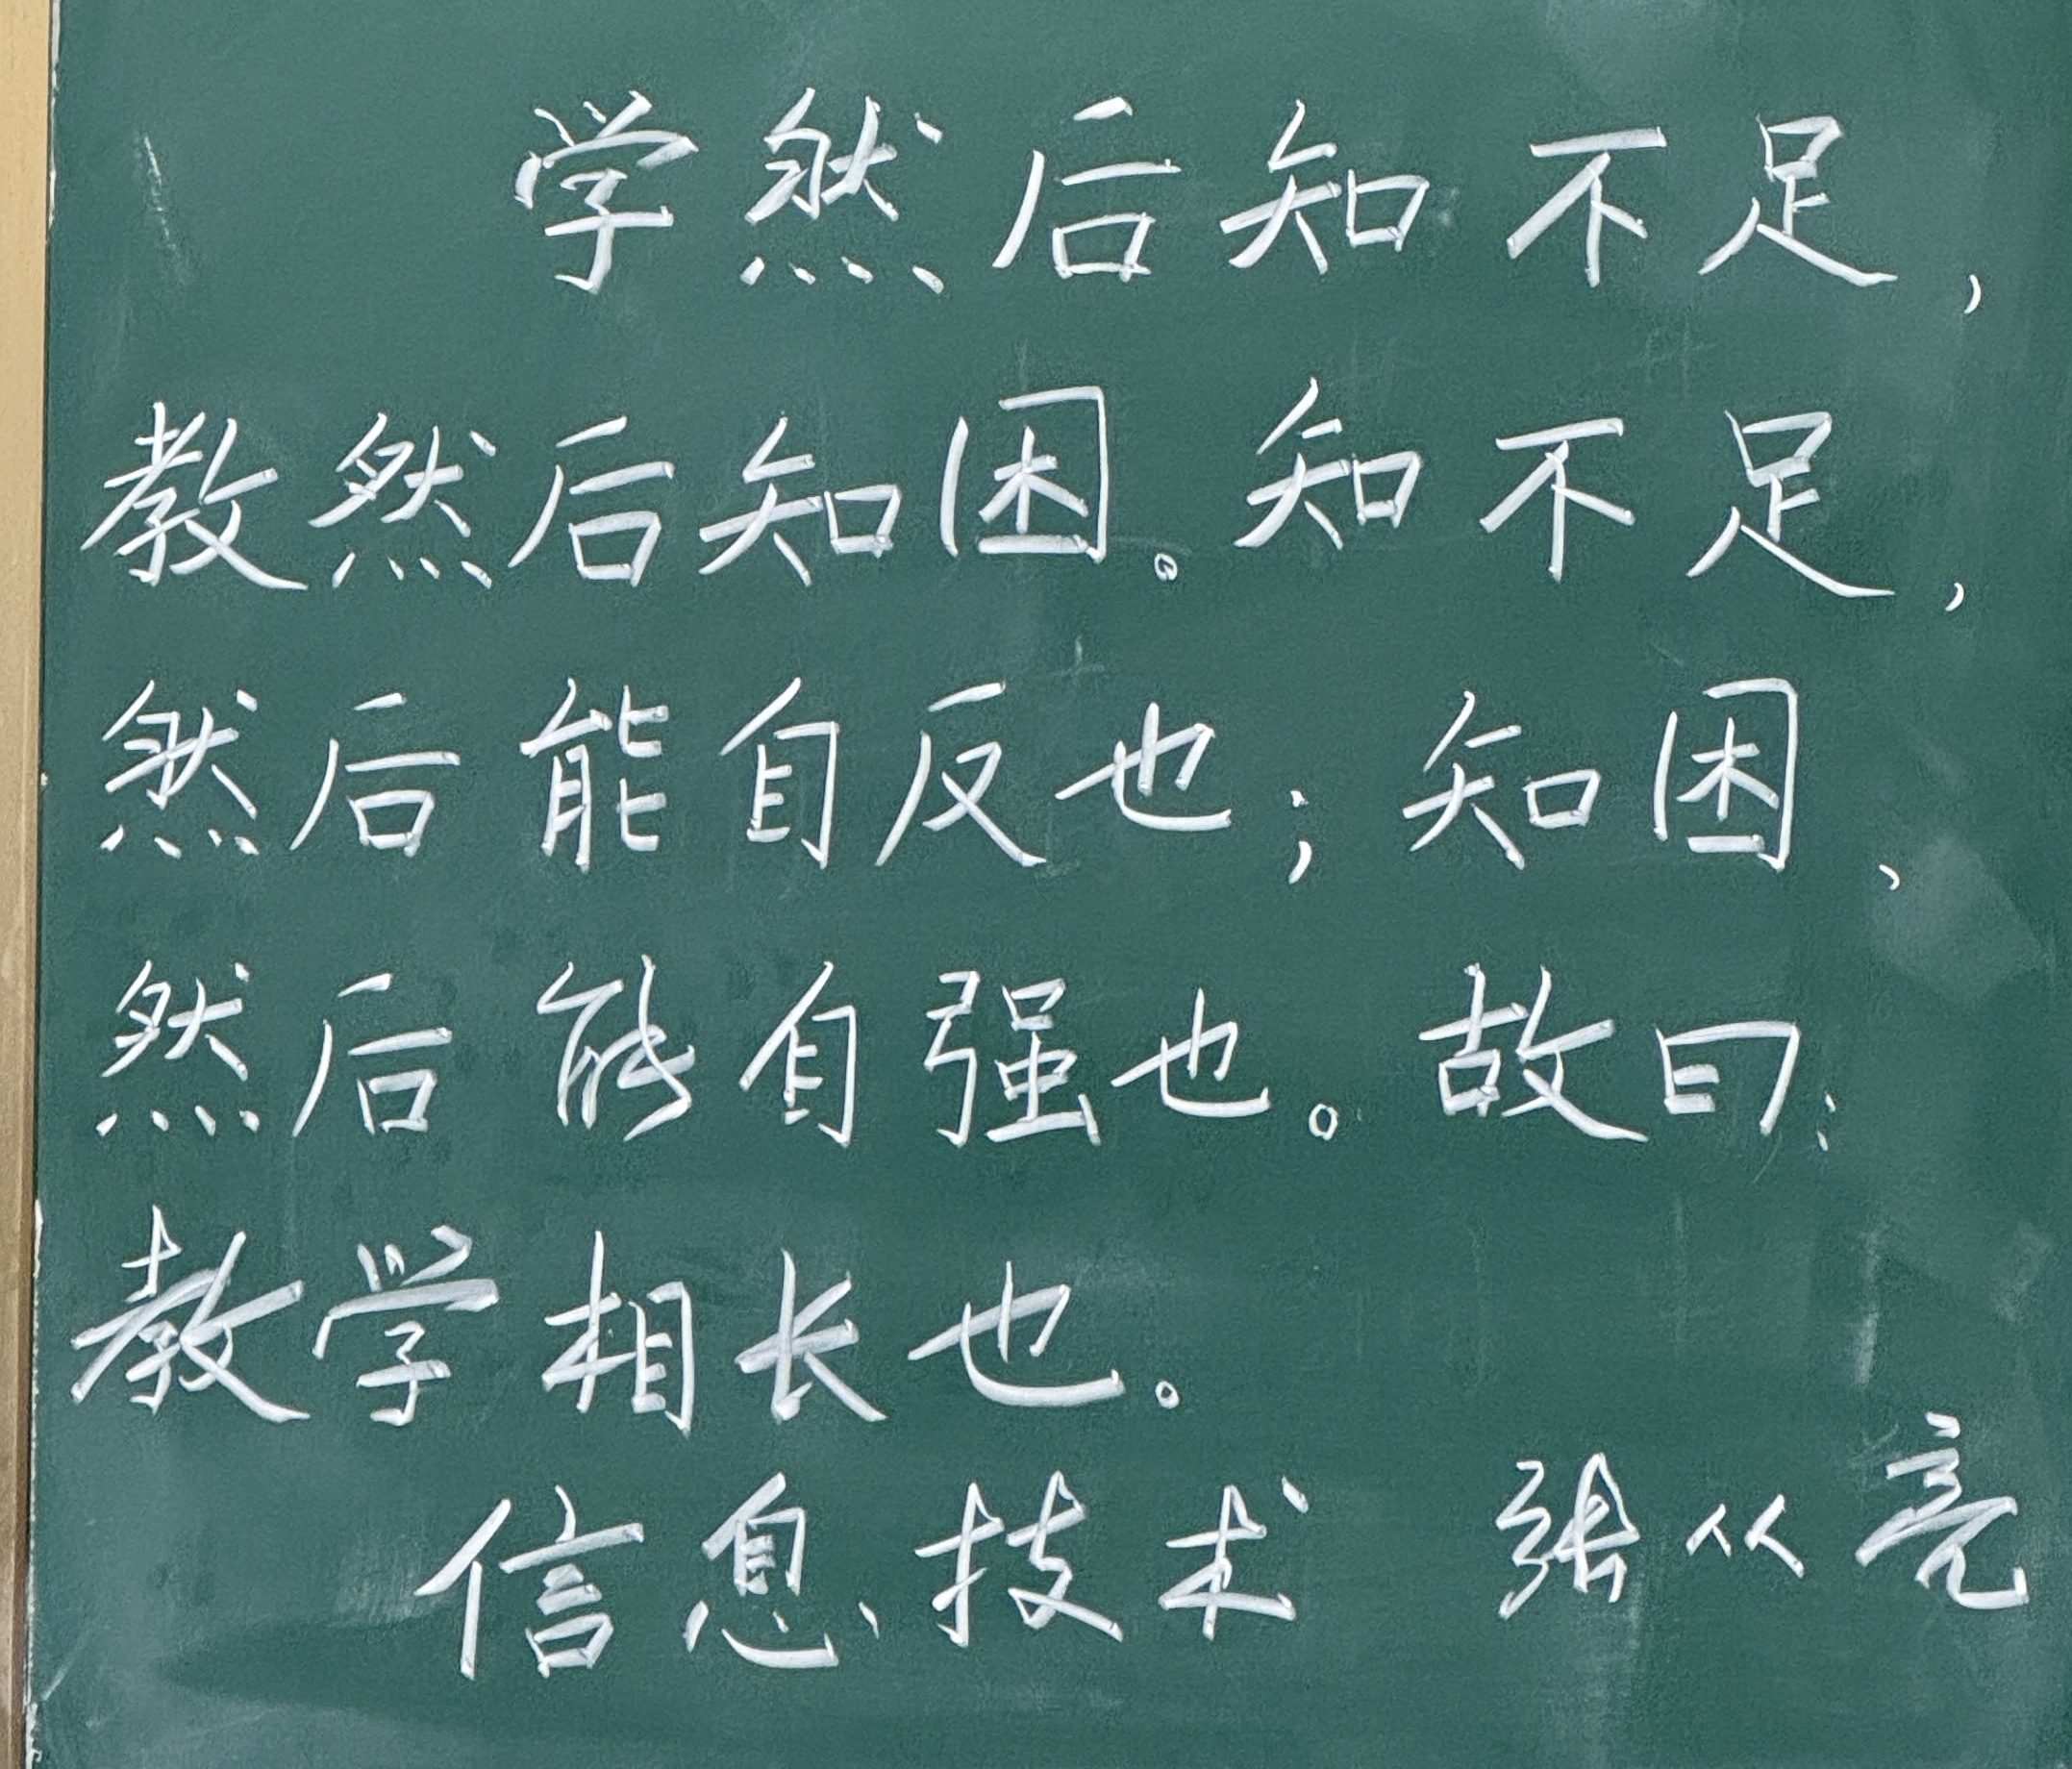 学然后知不足,
教然后知困。知不足,
然后能自反也;知困,
然后能自强也。故曰:
教学相长也。
信息技术 张从亮